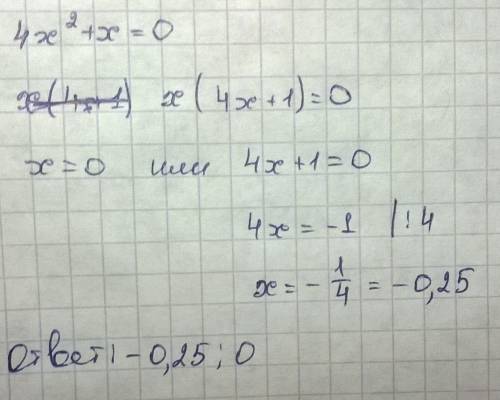 4x²+x=0
x(4x+1) x(4x+1)=0
x=0 или 4x+1=0
4x=-1 |:4
x=-1/4=-0,25
Ответ: -0,25; 0